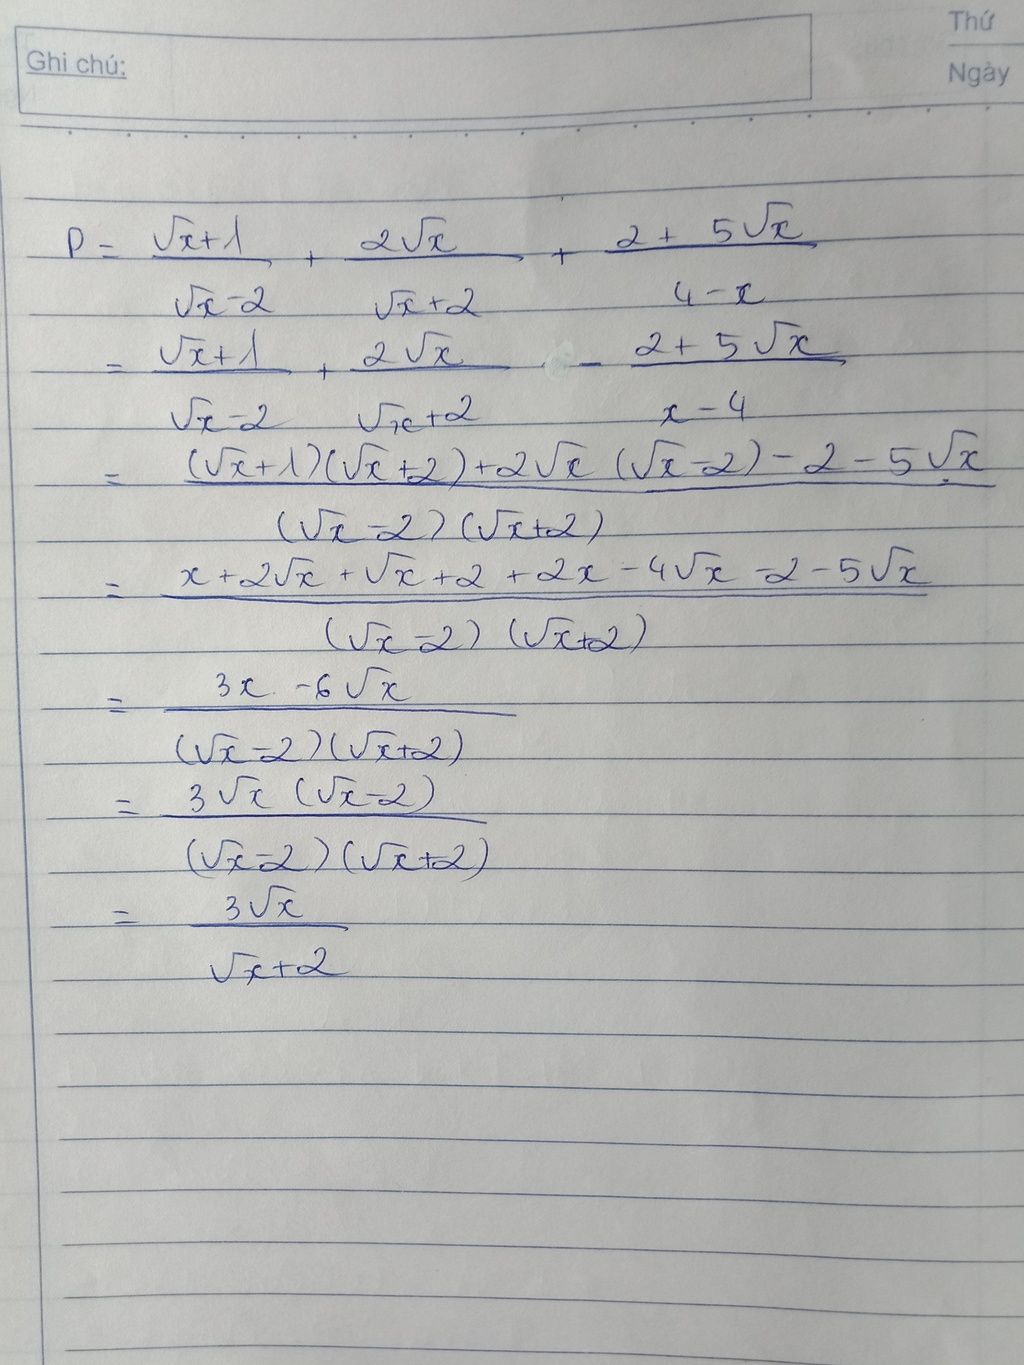 Ghi chú:
Thứ
Ngày
P = (√x+1)/(√x-2) + 2√x/(√x+2) + (2+5√x)/(4-x)
= (√x+1)/(√x-2) + 2√x/(√x+2) - (2+5√x)/(x-4)
= ((√x+1)(√x+2)+2√x(√x-2)-2-5√x)/((√x-2)(√x+2))
= (x+2√x+√x+2+2x-4√x-2-5√x)/((√x-2)(√x+2))
= (3x-6√x)/((√x-2)(√x+2))
= (3√x(√x-2))/((√x-2)(√x+2))
= 3√x/(√x+2)